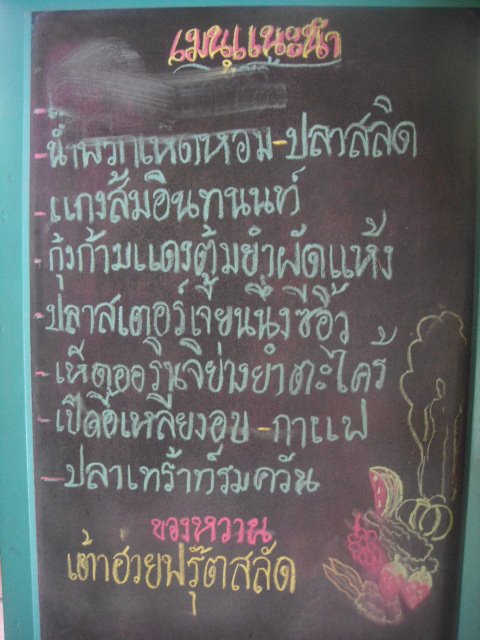 เมนูแนะนำ
- น้ำพริกเห็ดหอม-ปลาสลิด
- แกงส้มอินทนนท์
- กุ้งก้ามแดงต้มยำผัดแห้ง
- ปลาสเตอร์เจี้ยนนึ่งซีอิ๊ว
- เห็ดออรินจิย่างยำตะไคร้
- เป็ดอี้เหลียงอบ-กาแฟ
- ปลาเทร้าท์รมควัน
ของหวาน
เต้าฮวยฟรุ๊ตสลัด